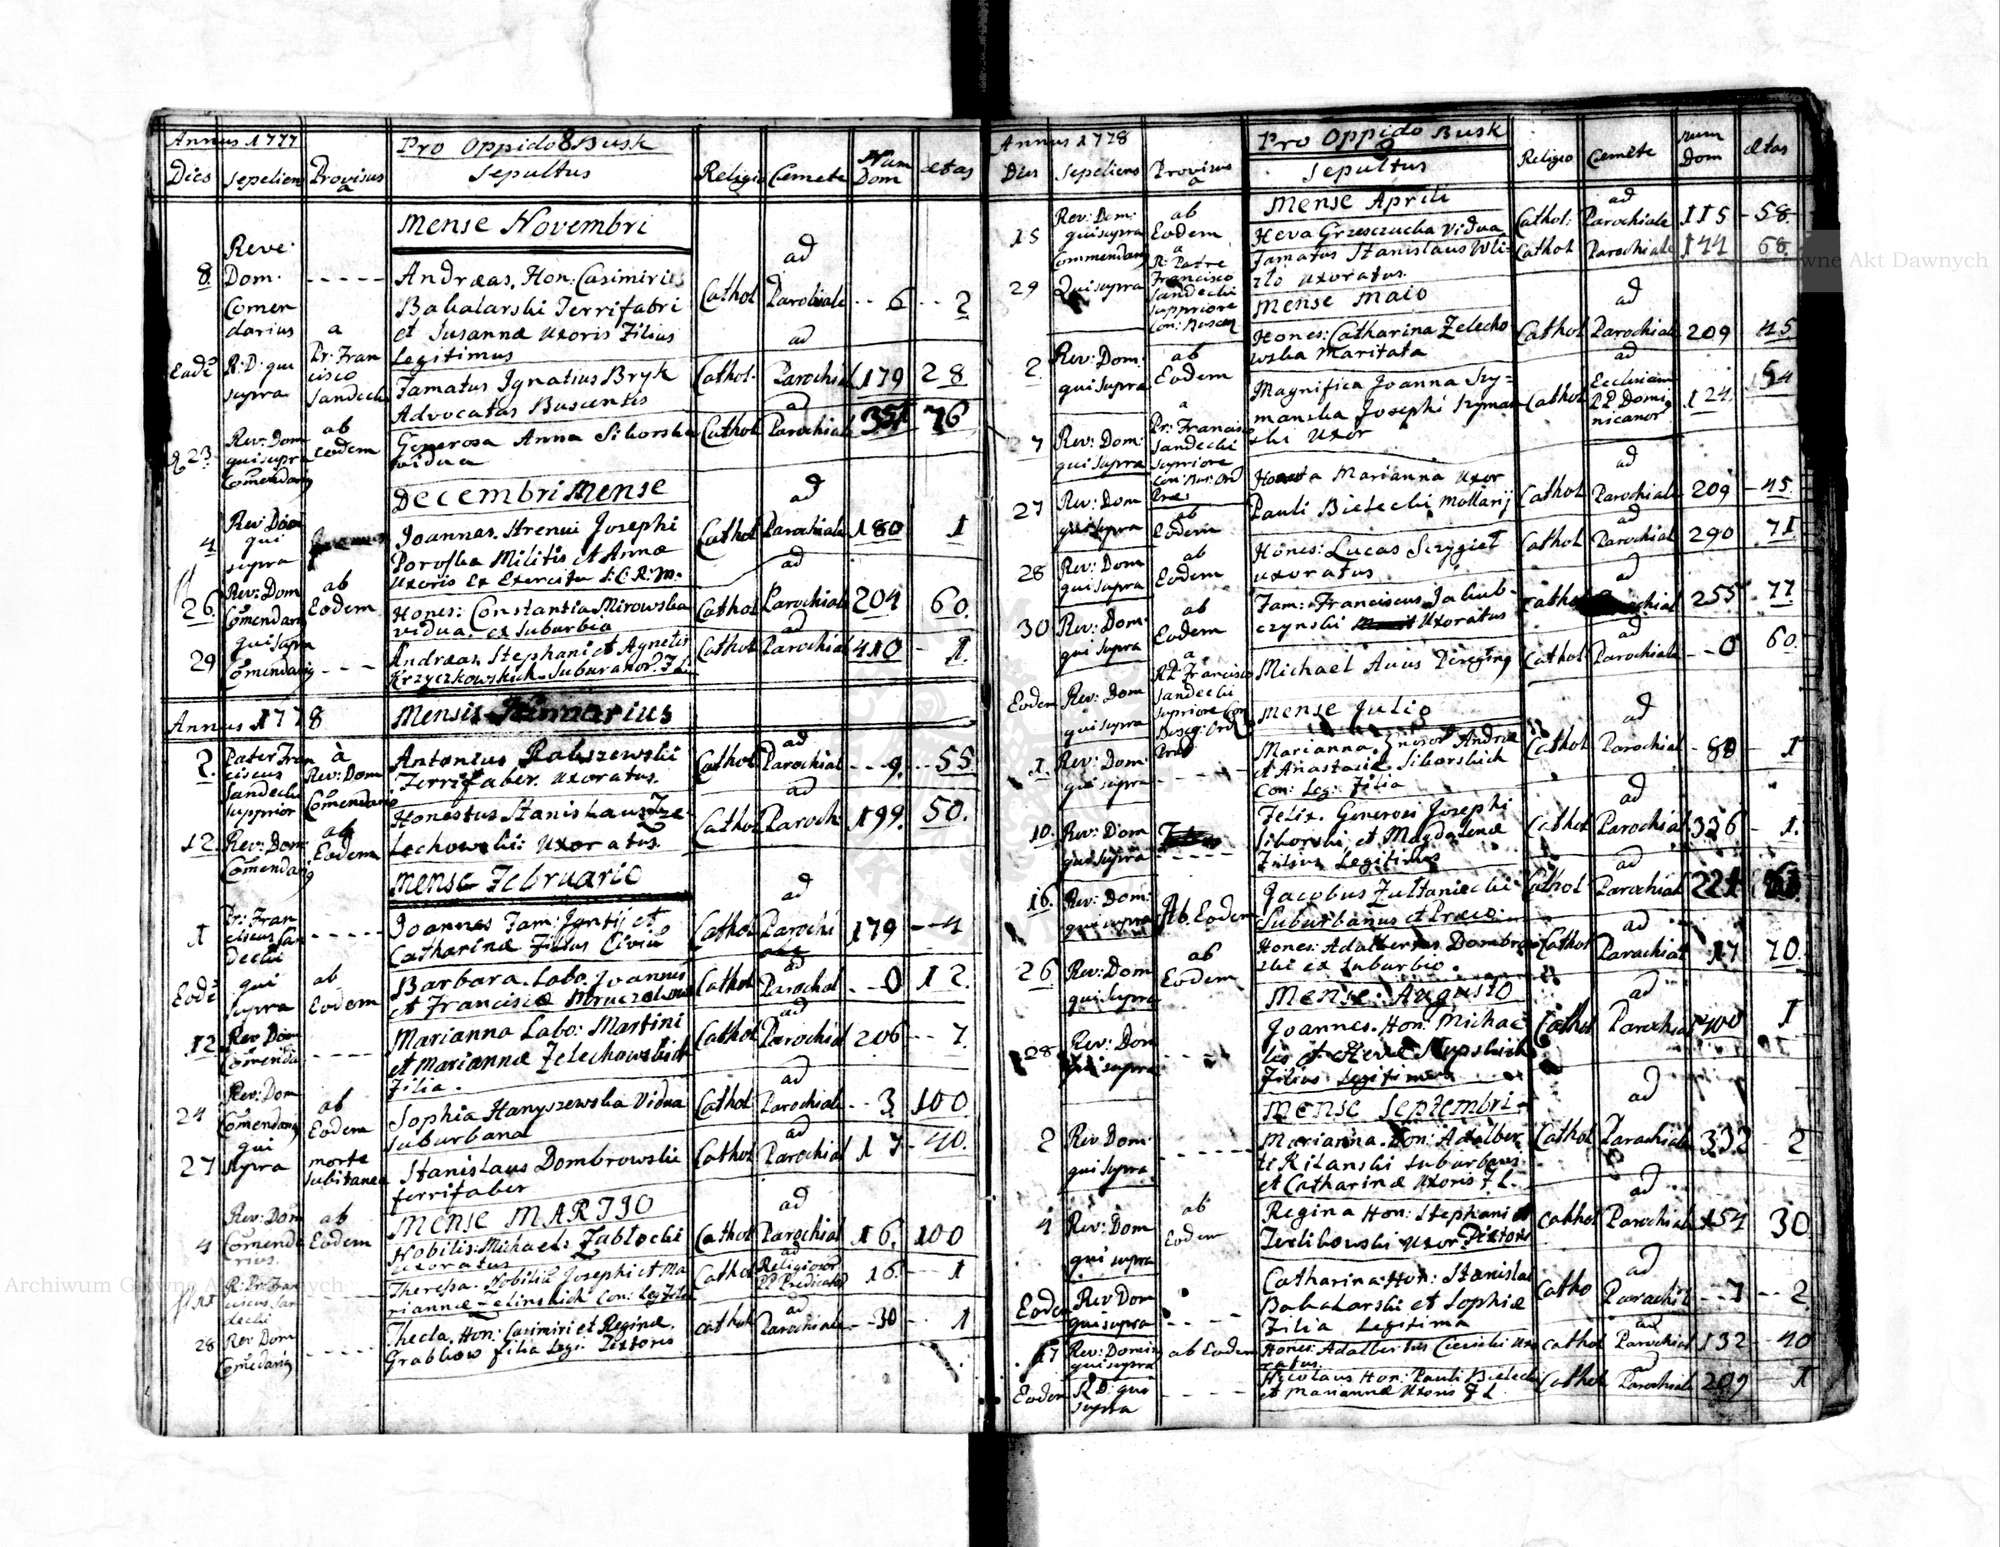 Annus 1777
Pro Oppido Busk
Dies
Sepeliens
Provisus a
Sepultus
Religio
Cœmete
Num Dom
ætas
Mense Novembri
8
Reve: Dom. Comen darius
- - - - -
Andræas, Hon: Casimiri
Bakalarski Ferrifabri
et Susannæ Uxoris Filius
Legitimus
Cathol
ad Parochiale
6
2
Eadē
R: D: qui supra
a Pr: Fran cisco Sandecki
Famatus Ignatius Bryk
Advocatus Buscensis
Cathol.
ad Parochial
179
28
23
Rev: Dom qui supra Comendari9
ab eodem
Generosa Anna Sikorska
vidua
Cathol
ad Parochiale
76
Decembri Mense
4
Rev: Dom qui supra
Joannes. Strenui Josephi
Militis et Annæ
Uxoris ex Exercitu S. C. R: M.
Cathol
ad Parochiale
180
1
26.
Rev: Dom Comendari9 qui supra
ab Eodem
Hones: Constantia Mirowska
vidua. ex Suburbio
Cathol
ad Parochiale
204
60.
29
Comendari9
- - -
Andræas. Stephani et Agnetis
Krzyczkowskich Suburanor. F L.
Cathol
ad Parochial
410
1.
Annus 1778
Mensis Januarius
2.
Pater Fran ciscus Sandecki Supprior
à Rev: Dom Comendario
Antonius Rakszewski
Ferrifaber. Uxoratus.
Cathol
ad Parochial
9.
55
12.
Rev: Dom: Comendari9
ab Eodem
Honestus Stanislaus Ze
lechowski: Uxoratus.
Cathol
ad Paroch:
199.
50.
Mense Februario
1
Pr: Fran ciscus San decki
- - - - -
Joannes Fam: Jantij et
Catharinæ Filius Civiū
Cathol
ad Parochi
179
4
Eodē
qui supra
ab Eodem
Barbara. Labo: Joannis
et Franciscæ
Cathol
ad Parochal
0
12.
12
Rev Dom Comenda
- - - -
Marianna Labo: Martini
et Mariannæ Zelechowskich
Filia.
Cathol
ad Parochial
206
7.
24
Rev: Dom Comendari9
ab Eodem
Sophia Hanyszewska Vidua
Suburbana
Cathol
ad Parochiale
3.
100
27
qui supra
morte Subitanea
Stanislaus Dombrowski
ferrifaber
Cathol
ad Parochial
17
40.
MENSE MARTIO
4
Rev: Dom Comenda rius.
ab Eodem
Nobilis: Michael: Zabłocki
uxoratus
Cathol
ad Parochial
16.
100
R: Pr: Fran ciscus San decki
- - - -
Theresa. Nobiliū Josephi et Ma
riannæ Zelinskich Con: Leg Filia
Cathol
ad Religiosor PP Predicator
16.
1
28
Rev Dom Comedari9
- - - - -
Thecla. Hon: Casimiri et Reginæ.
Grabkow filia Leg: Textoris
cathol
ad Parochiale
30
1
Annus 1778
Pro Oppido Busk
Dies
Sepeliens
Provisus a
Sepultus
Religio
Cæmete
Num Dom
ætas
Mense Aprili
15
Rev: Dom: qui supra Commendari9
ab Eodem
Heva Grzeszczucha Vidua
Cathol:
ad Parochiale
115
58.
29
Qui supra
a R: Patre Francisco Sandecki Suppriore Con: Buscen
Famatus Stanislaus Wli
zlo uxoratus.
Cathol
Parochiale
144
68.
Mense Maio
2.
Rev: Dom: qui supra
ab Eodem
Hones: Catharina Zelecho
wska Maritata
Cathol
ad Parochiale
209
45
7
Rev: Dom: qui supra
a Pr: Francisco Sandecki Supriore Con: Bus: Ord Præ:
Magnifica Joanna Szy=
manska Josephi Szyman
ski Uxor
Cathol
ad Ecclesiam PP Domi nicanor
124.
54
27
Rev: Dom qui supra
ab Eodem
Marianna Uxor
Pauli Bielecki
Cathol
ad Parochiale
209
45
28
Rev: Dom qui supra
ab Eodem
Hones: Lucas Szygieł
uxoratus
Cathol
ad Parochiale
290
71.
30
Rev: Dom: qui supra
ab Eodem
Fam: Franciscus Jakub-
czynski Uxoratus
Cathol
ad
255
77
Eodem
Rev: Dom qui supra
a R: P: Francisco Sandecki Supriore Con
Michael Avus
Cathol
ad Parochiale
0
60.
Mense Julio
1.
Rev: Dom qui supra
- - - - -
Marianna. Andreæ
et Anastasiæ. Sikorskich
Con: Leg: Filia
Cathol
ad Parochial
1
10.
Rev: Dom qui supra
- - - -
Felix. Generosi Josephi
Sikorski, et Magdalenæ
Filius Legitimus
Cathol
ad Parochial
336
1.
16.
Rev: Dom: qui supra
Ab. Eodem
Jacobus Zułtaniecki
Suburbanus et Præco
Cathol
ad Parochial
221
26
Rev: Dom qui supra
ab Eodem
Hones: Adalbertus Dombro
ski ex Suburbio.
Cathol
ad Parochial
17
70.
Mense: Augusto
28
Rev: Dom qui supra
- - - -
Joannes. Hon: Michae
lis et Hevæ
Filius Legitimus
Cathol
ad Parochial
400
1
Mense Septembri
2
Rev Dom: qui supra
- - - - -
Marianna. Hon: Adalber
ti Kilanski Suburbans
et Catharinæ Uxoris F L.
Cathol
ad Parochiale
332
2
4
Rev: Dom qui supra
ab Eodem
Regina Hon: Stephani
Uxor Textoris
Cathol
ad Parochial
154
30
Eodem
Rev Dom qui supra
- - - -
Catharina Hon: Stanislai
Bakalarski et Sophiæ
Filia Legitima
Catho
ad Parochil
7
2.
17
Rev: Domin qui supra
ab Eodem
Hones: Adalbertus Uxo
ratus.
cathol
ad Parochial
132
40
Eodem
R D: qui supra
- - - -
Nicolaus Hon: Pauli Bieleck
et Mariannæ Uxoris F L.
Cathol
ad Parochial
209
1
Archiwum Główne Akt Dawnych
Archiwum Główne Akt Dawnych